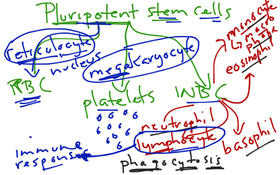 Pluripotent stem cells
reticulocyte
nucleus
megakaryocyte
RBC
platelets
WBC
monocyte
macro
phage
eosinophil
basophil
neutrophil
lymphocyte
immune
response
phagocytosis